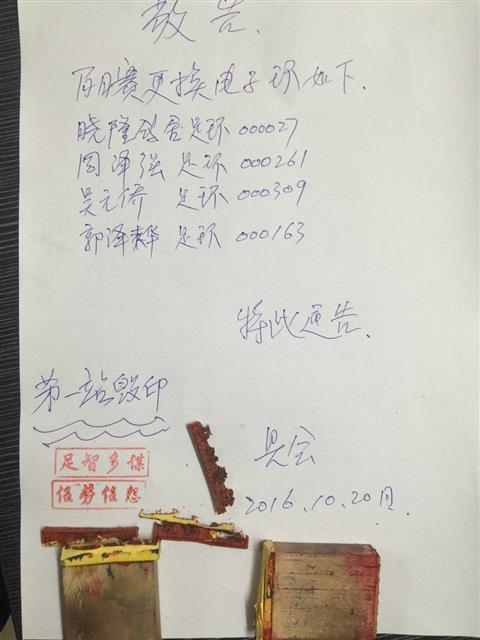 敬告.
百日赛更换电子环如下.
晓隆鸽舍足环 000027
周泽强 足环 000261
吴元侨 足环 000309
郭泽华 足环 000163
特此通告.
第一站毁印
足智多谋
任劳任怨
县会
2016.10.20日.